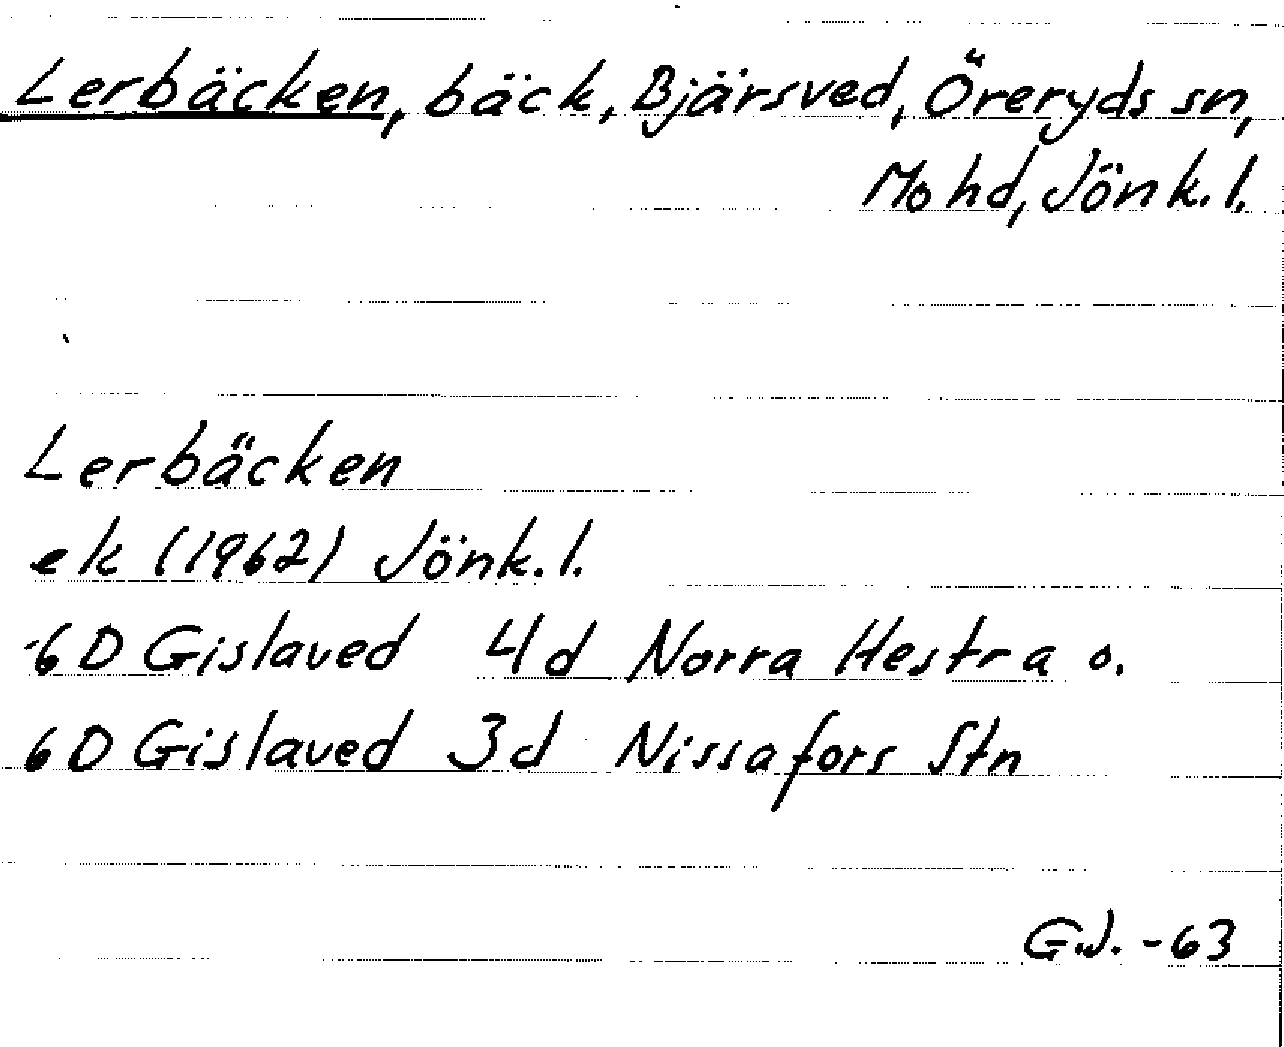 Lerbäcken, bäck, Bjärsved, Öreryds sn,
Mohd, Jönk.l.
Lerbäcken
ek (1962) Jönk.l.
6D Gislaved 4d Norra Hestra o.
6D Gislaved 3d Nissafors Stn
G.J. -63